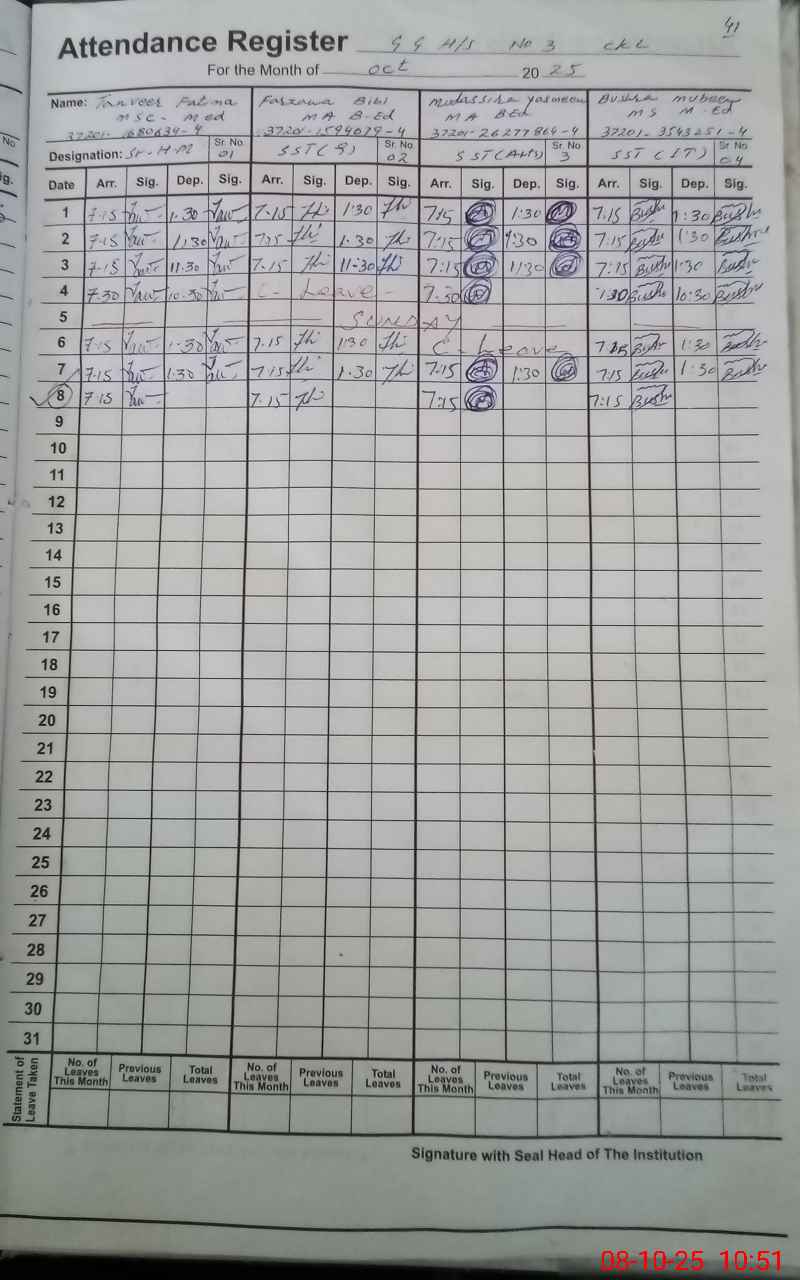 41
Attendance Register G G H/S No 3 CKL
For the Month of Oct 2025
Name: Tanveer Fatima Farzana Bibi Mudassira Yasmeen Bushra Mubeen
MSC- Med MA B-Ed MA BEd MS M-Ed
37201-1680634-4 37201-1594079-4 37201-2627786-4 37201-3543251-4
Designation: Sr-H-M Sr. No 01 SST( ) Sr. No 02 SST(Arts) Sr. No 3 SST (IT) Sr. No 04
Date Arr. Sig. Dep. Sig. Arr. Sig. Dep. Sig. Arr. Sig. Dep. Sig. Arr. Sig. Dep. Sig.
1 7-15 1-30 7-15 1:30 7:15 1:30 7:15 Bushr 1:30 Bushr
2 7-15 1-30 7-15 1-30 7:15 1:30 7:15 Bushr 1:30 Bushr
3 7-15 11-30 7-15 11-30 7:15 11:30 7:15 Bushr 1:30 Bushr
4 7-30 10-30 C- Leave - 7-30 7:30 Bushr 10:30 Bushr
5 SUNDAY
6 7-15 1-30 7-15 1:30 C- Leave 7:15 Bushr 1:30 Bushr
7 7-15 1:30 7-15 1-30 7:15 1:30 7:15 Bushr 1:30 Bushr
8 7-15 7-15 7:15 7:15 Bushr
9
10
11
12
13
14
15
16
17
18
19
20
21
22
23
24
25
26
27
28
29
30
31
Statement of Leave Taken
No. of Leaves This Month Previous Leaves Total Leaves No. of Leaves This Month Previous Leaves Total Leaves No. of Leaves This Month Previous Leaves Total Leaves No. of Leaves This Month Previous Leaves Total Leaves
Signature with Seal Head of The Institution
08-10-25 10:51